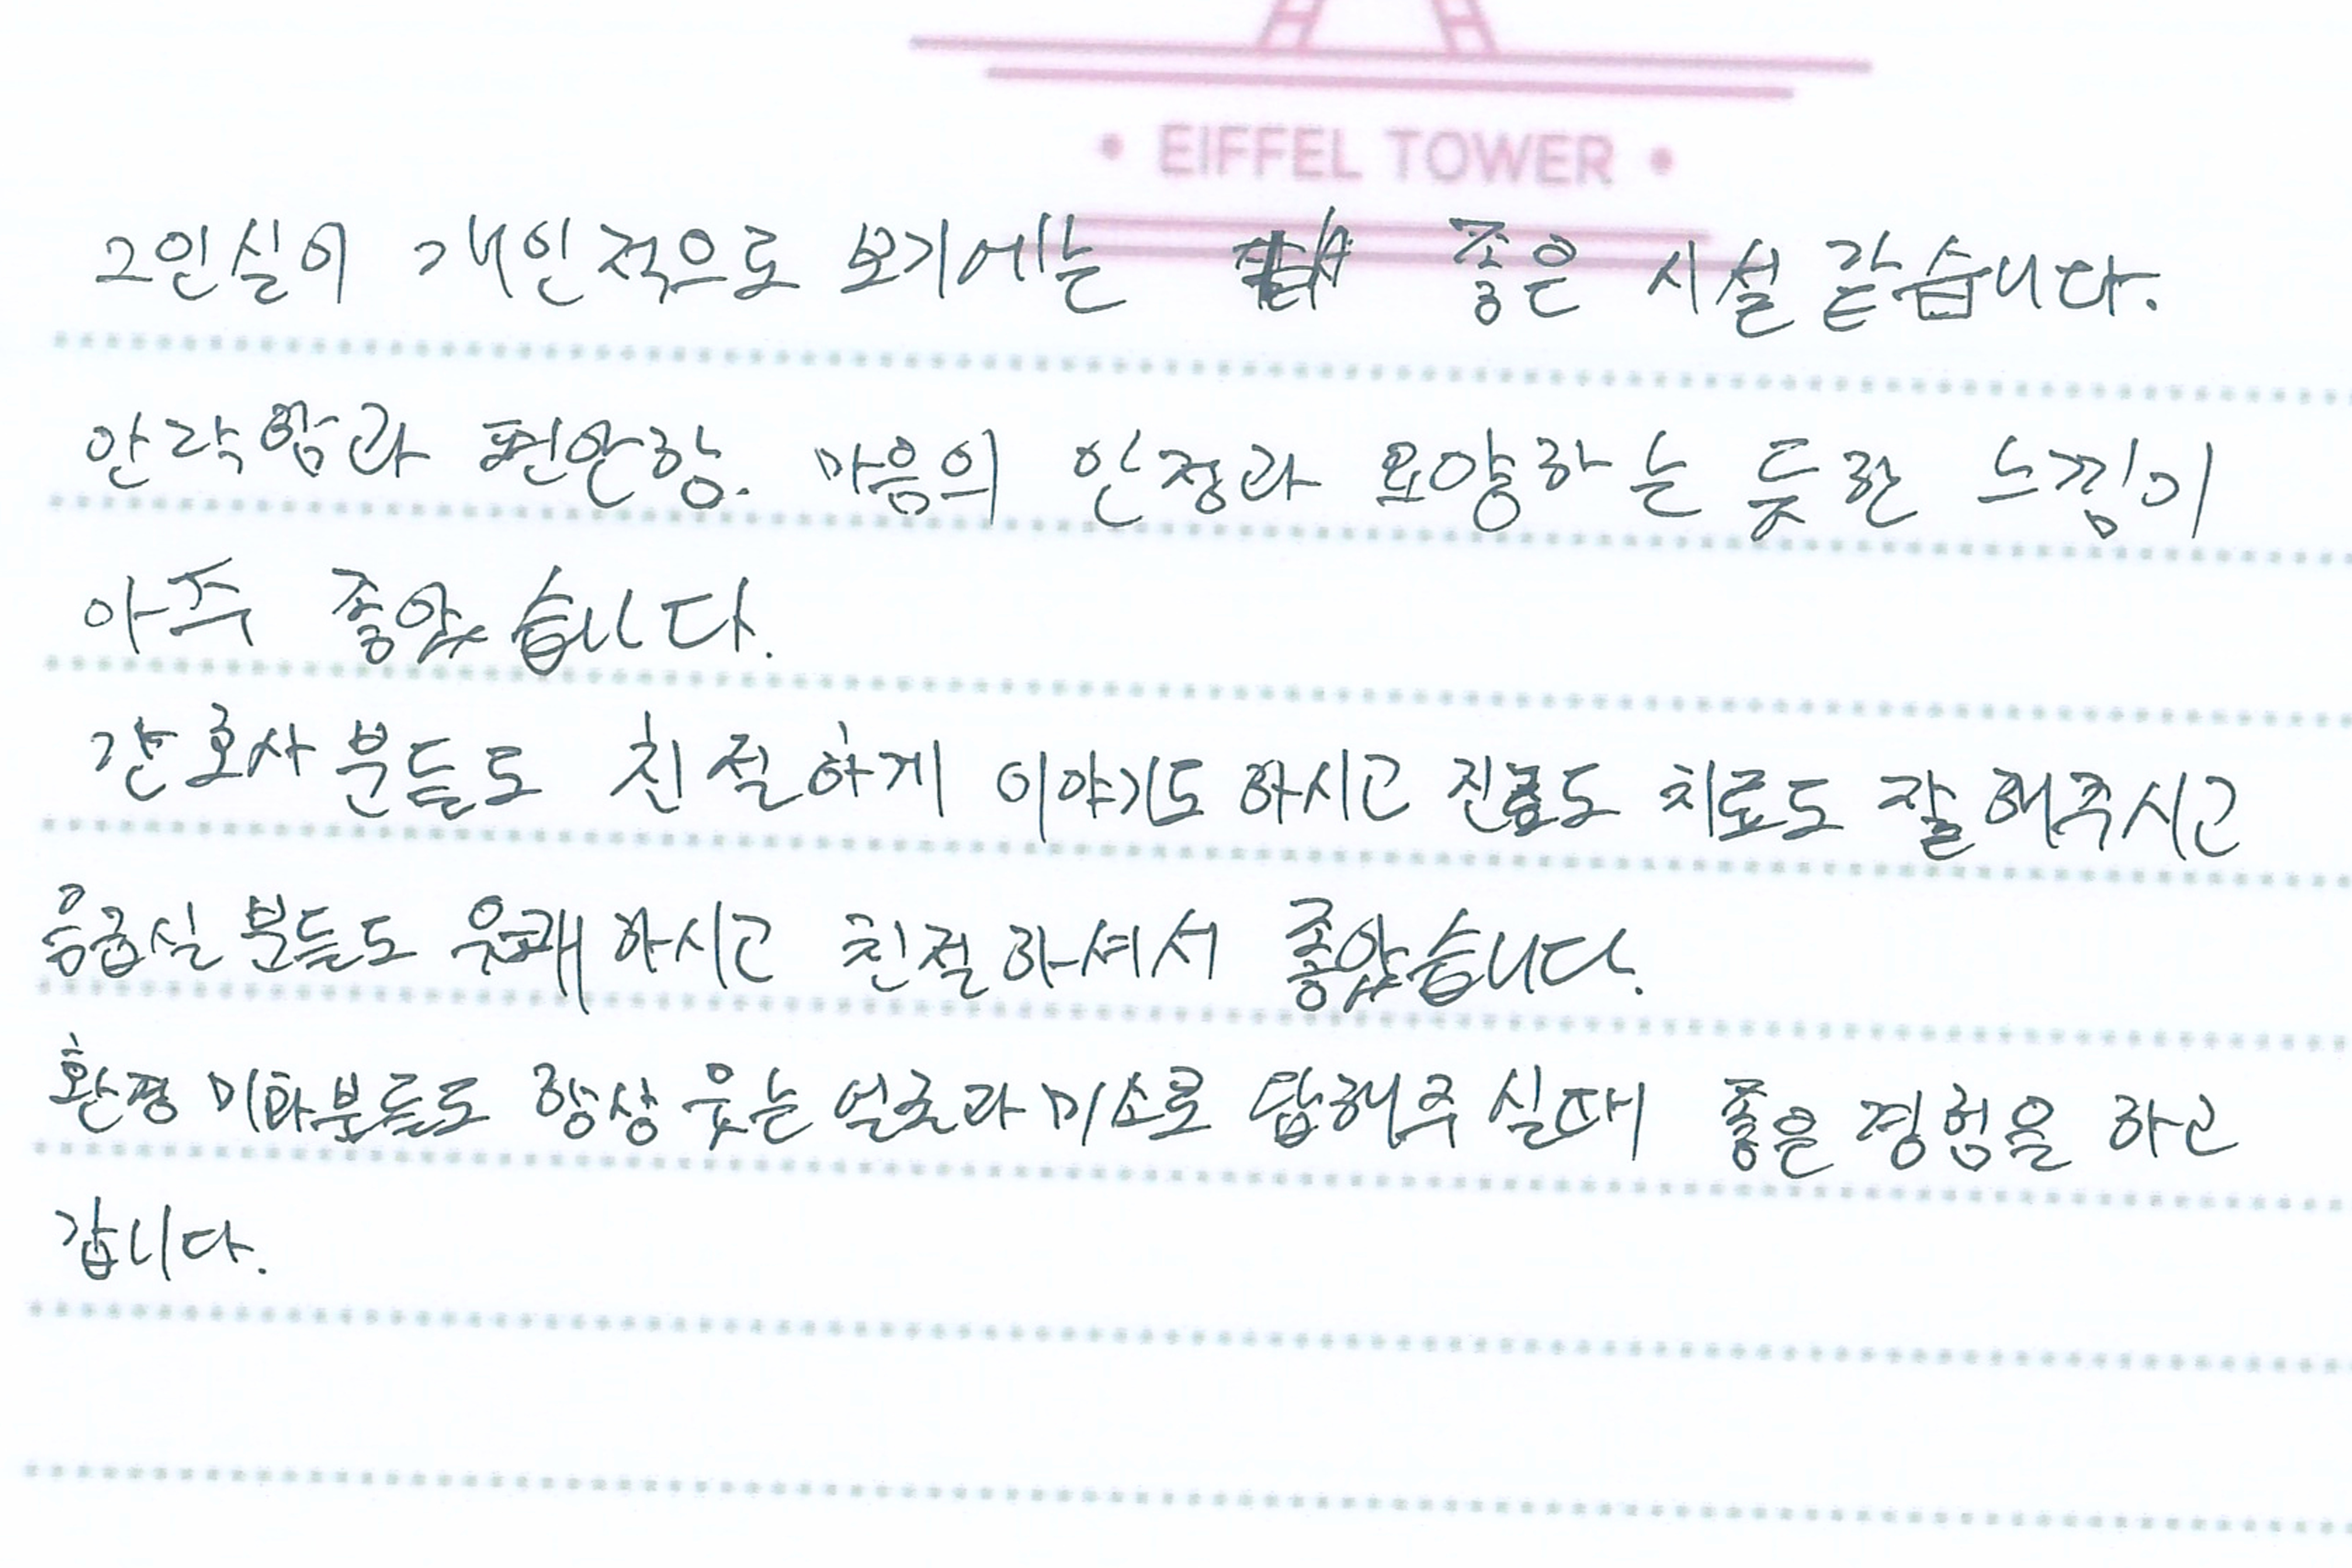 EIFFEL TOWER
2인실이 개인적으로 보기에는 좋은 시설 같습니다.
안락함과 편안함. 마음의 안정과 요양하는 듯한 느낌이
아주 좋았습니다.
간호사분들도 친절하게 이야기도 하시고 진료도 치료도 잘 해주시고
응급실 분들도 유쾌하시고 친절하셔서 좋았습니다.
환경 미화분들도 항상 웃는 얼굴과 미소로 답해주실때 좋은 경험을 하고
갑니다.